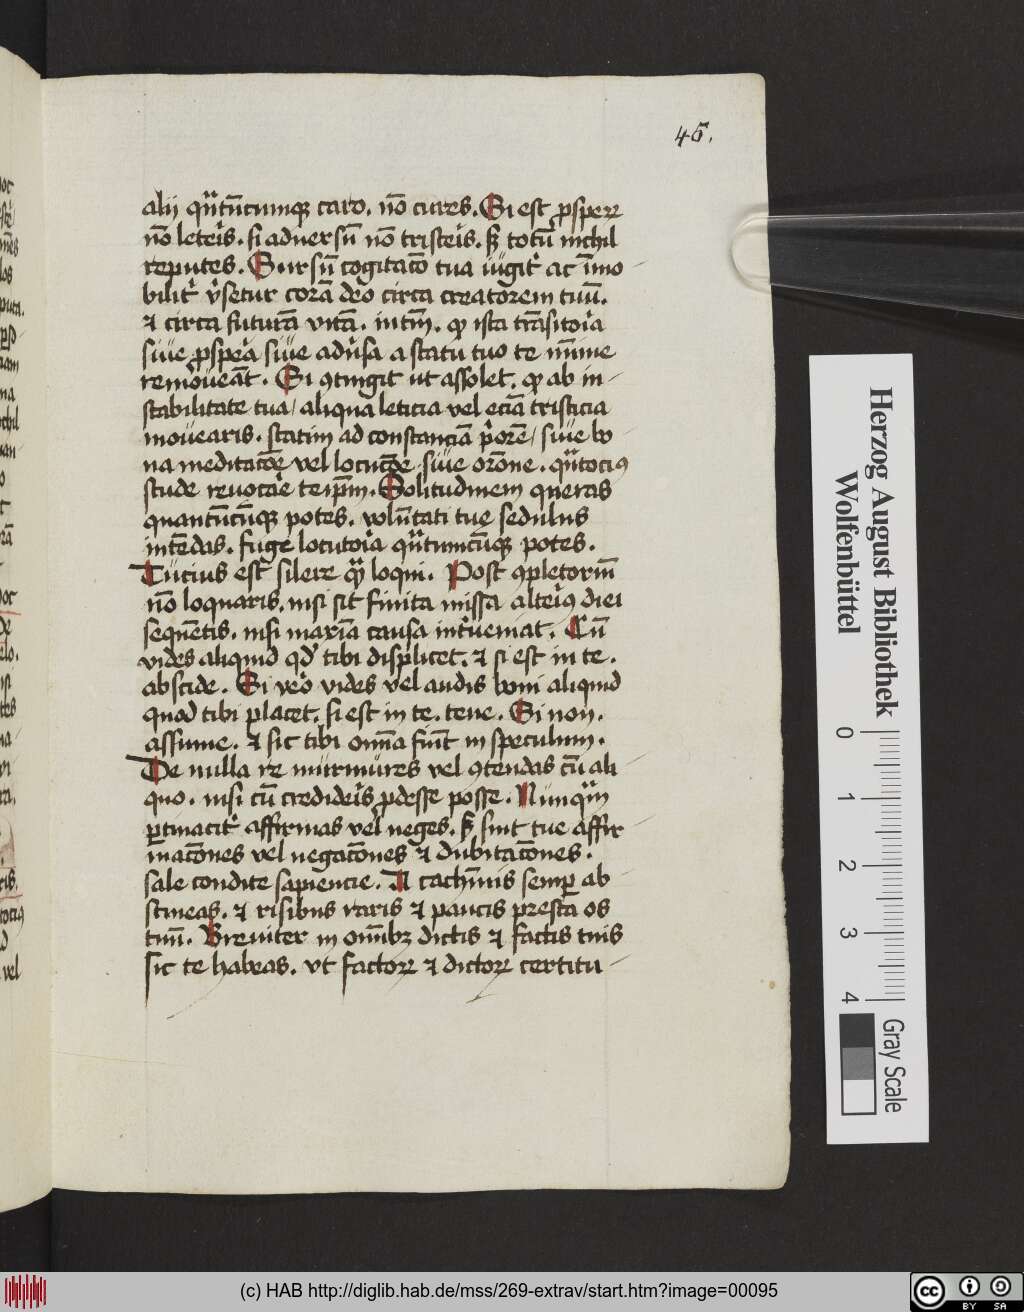 46.
alij quātūcumqꝫ caro. nō cures. Si est ꝓsperꝝ
nō leteris. si aduersū nō tristeris. sꝫ totū nichil
reputes. Sursū cogitacō tua iugit̄ ac īmo
bilit̄ v̄setur corā deo circa creatorem tuū.
⁊ circa futurā vitā. intm̄. ꝙ ista trāsitoria
siue ꝓspera siue adūsa a statu tuo te mīme
remoueāt. Si ꝯtingit ut assolet. ꝙ ab in
stabilitate tua / aliqua leticia vel eciā tristicia
mouearis. statim ad constanciā p̄orē / siue bo
na meditacōe vel locucōe siue orōne. quātociꝰ
stude reuocare teip̄m. Solitudinem queras
quantūcūqꝫ potes. volūtati tue sedulus
intēdas. fuge locutoria quātumcūqꝫ potes.
Tucius est silere quā loqui. Post ꝯpletoriū
nō loquaris. nisi sit finita missa alteriꝰ diei
sequētis. nisi maxīa causa int̄ueniat. Cū
vides aliquid qd̄ tibi displicet. ⁊ si est in te.
abscide. Si vero vides vel audis boni aliquid
quod tibi placet. si est in te. tene. Si non.
assume. ⁊ sic tibi omīa fiūt in speculum.
De nulla re murmures vel ꝯtendas cū ali
quo. nisi cū credideris ꝓdesse posse. Nunquā
ꝑtinacit̄ affirmas vel neges. sꝫ sint tue affir
macōnes vel negacōnes ⁊ dubitacōnes.
sale condite sapiencie. A cachinis semꝑ ab
stineas. ⁊ risibus raris ⁊ paucis presta os
tuū. Breuiter in omībꝫ dictis ⁊ factis tuis
sic te habeas. vt factorꝝ ⁊ dictorꝝ certitu
Herzog August Bibliothek
Wolfenbüttel
0 1 2 3 4
Gray Scale
(c) HAB http://diglib.hab.de/mss/269-extrav/start.htm?image=00095
cc BY SA